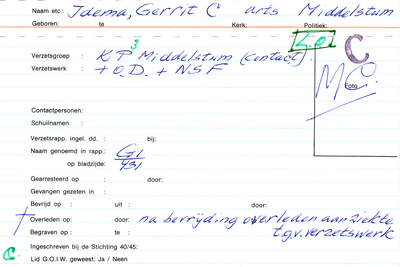 Naam etc.: Idema, Gerrit C arts Middelstum
Geboren: te Kerk: Politiek:
L.O.
C
Verzetsgroep : K P Middelstum (contact)
3
Verzetswerk : + O.D. + NSF
M C.
Foto
Contactpersonen:
Schuilnaam :
Verzetsrapp. ingel. dd. : bij:
Naam genoemd in rapp.: G1
op bladzijde: 431
Gearresteerd op : door:
Gevangen gezeten in :
Bevrijd op : uit : door:
† Overleden op: door: na bevrijding overleden aan ziekte
Begraven op : te : t.g.v. verzetswerk
C. Ingeschreven bij de Stichting 40/45:
Lid G.O.I.W. geweest: Ja / Neen